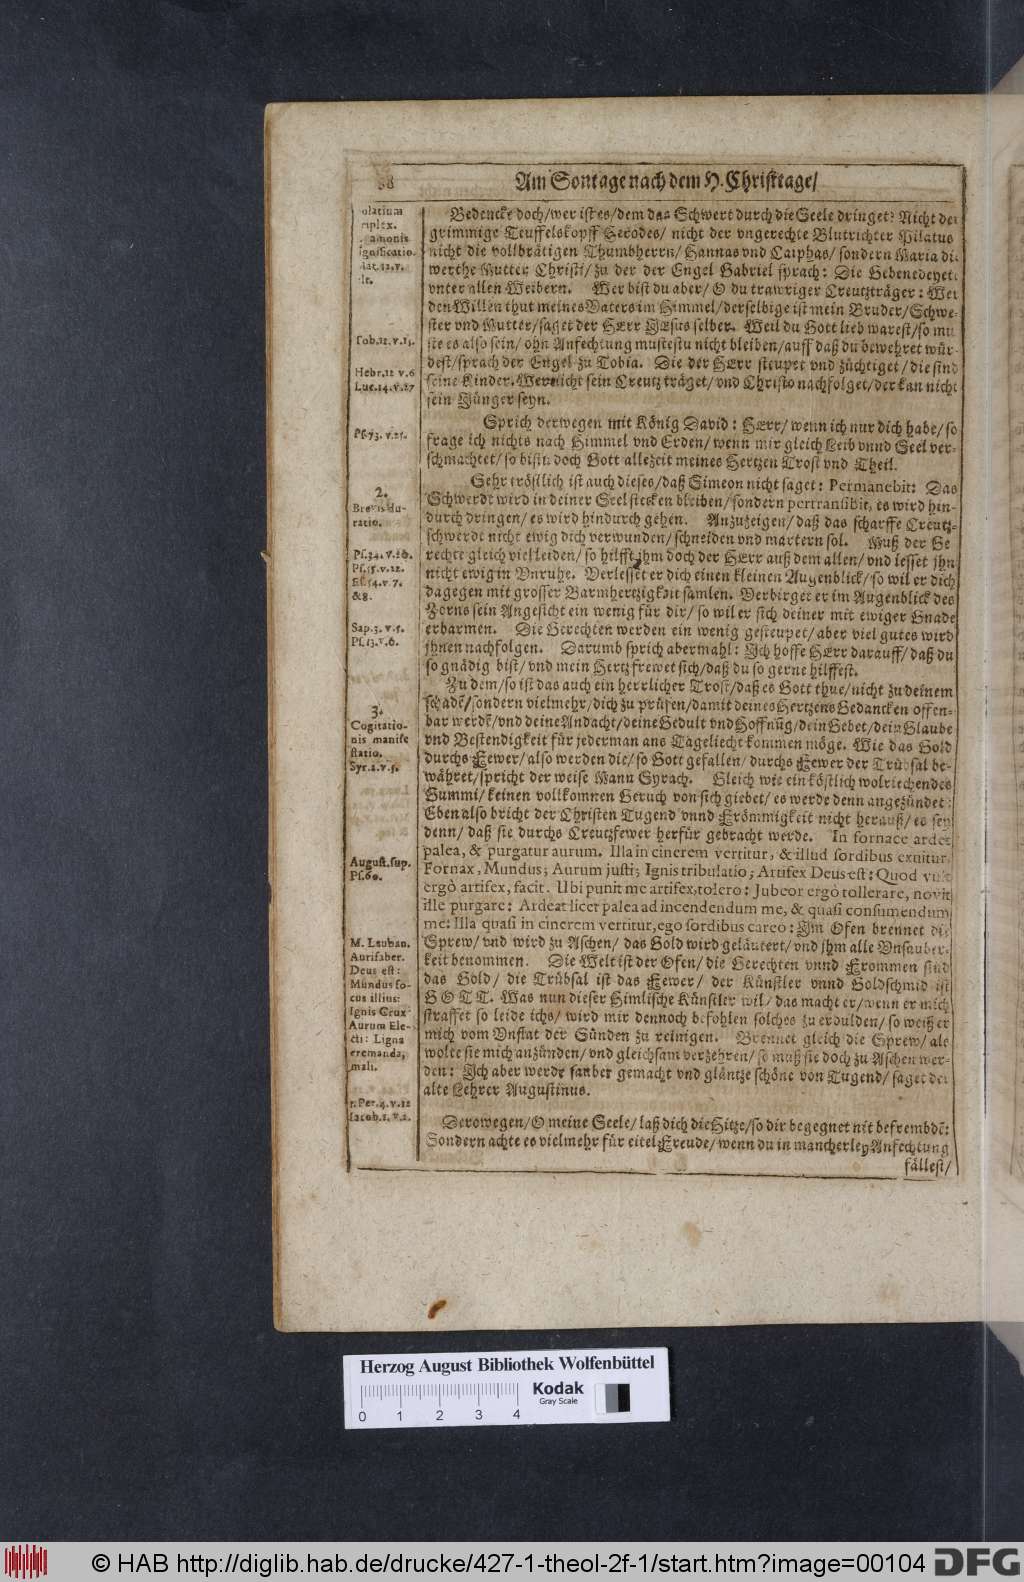 Am Sontage nach dem H. Christtage/
Bedencke doch/ wer ist es/ dem das Schwert durch die Seele dringet? Nicht der
grimmige Teuffelskopff Herodes/ nicht der vngerechte Blutrichter Pilatus
nicht die vollbrätigen Thumbherrn/ Hannas vnd Caiphas/ sondern Maria di
werthe Mutter Christi/ zu der der Engel Gabriel sprach: Die Gebenedeyete
vnter allen Weibern. Wer bist du aber/ O du trawriger Creutzträger: Wer
den Willen thut meines Vaters im Himmel/ derselbige ist mein Bruder/ Schwe-
ster vnd Mutter/ saget der HErr JEsus selber. Weil du Gott lieb warest/ so mu
ste es also sein/ ohn Anfechtung mustestu nicht bleiben/ auff daß du bewehret wür-
dest/ sprach der Engel zu Tobia. Die der HErr steupet vnd züchtiget/ die sind
seine Kinder. Wer nicht sein Creutz träget/ vnd Christo nachfolget/ der kan nicht
sein Jünger seyn.
Sprich derwegen mit König David: HErr/ wenn ich nur dich habe/ so
frage ich nichts nach Himmel vnd Erden/ wenn mir gleich Leib vnnd Seel ver-
schmachtet/ so bistu doch Gott allezeit meines Hertzen Trost vnd Theil.
Sehr tröstlich ist auch dieses/ daß Simeon nicht saget: Permanebit: Das
Schwerdt wird in deiner Seel stecken bleiben/ sondern pertransibit, es wird hin-
durch dringen/ es wird hindurch gehen. Anzuzeigen/ daß das scharffe Creutz-
schwerdt nicht ewig dich verwunden/ schneiden vnd martern sol. Muß der Ge
rechte gleich viel leiden/ so hilfft jhm doch der HErr auß dem allen/ vnd lesset jhn
nicht ewig in Vnruhe. Verlesset er dich einen kleinen Augenblick/ so wil er dich
dagegen mit grosser Barmhertzigkeit samlen. Verbirget er im Augenblick des
Zorns sein Angesicht ein wenig für dir/ so wil er sich deiner mit ewiger Gnade
erbarmen. Die Gerechten werden ein wenig gesteupet/ aber viel gutes wird
jhnen nachfolgen. Darumb sprich abermahl: Ich hoffe HErr darauff/ daß du
so gnädig bist/ vnd mein Hertz frewet sich/ daß du so gerne hilffest.
Zu dem/ so ist das auch ein herrlicher Trost/ daß es Gott thue/ nicht zu deinem
schadē/ sondern vielmehr/ dich zu prüfen/ damit deines Hertzens Gedancken offen-
bar werdē/ vnd deine Andacht/ deine Gedult vnd Hoffnūg/ dein Gebet/ dein Glaube
vnd Bestendigkeit für jederman ans Tageliecht kommen möge. Wie das Gold
durchs Fewer/ also werden die/ so Gott gefallen/ durchs Fewer der Trübsal be-
währet/ spricht der weise Mann Syrach. Gleich wie ein köstlich wolriechendes
Gummi/ keinen vollkomnen Geruch von sich giebet/ es werde denn angezündet:
Eben also bricht der Christen Tugend vnnd Frömmigkeit nicht herauß/ es sey
denn/ daß sie durchs Creutzfewer herfür gebracht werde. In fornace ardet
palea, & purgatur aurum. Illa in cinerem vertitur, & illud sordibus exuitur.
Fornax, Mundus; Aurum justi; Ignis tribulatio; Artifex Deus est: Quod vult
ergò artifex, facit. Ubi punit me artifex, tolero: Jubeor ergò tollerare, novit
ille purgare: Ardeat licet palea ad incendendum me, & quasi consumendum
me: Illa quasi in cinerem vertitur, ego sordibus careo: Im Ofen brennet die
Sprew/ vnd wird zu Aschen/ das Gold wird geläutert/ vnd jhm alle Vnsauber-
keit benommen. Die Welt ist der Ofen/ die Gerechten vnnd Frommen sind
das Gold/ die Trübsal ist das Fewer/ der Künstler vnnd Goldschmid ist
GOTT. Was nun dieser Himlische Künstler wil/ das macht er/ wenn er mich
straffet so leide ichs/ wird mir dennoch befohlen solches zu erdulden/ so weiß er
mich vom Vnflat der Sünden zu reinigen. Brennet gleich die Sprew/ als
wolte sie mich anzünden/ vnd gleichsam verzehren/ so muß sie doch zu Aschen wer-
den: Ich aber werde sauber gemacht vnd gläntze schöne von Tugend/ saget der
alte Lehrer Augustinus.
Derowegen/ O meine Seele/ laß dich die Hitze/ so dir begegnet nit befrembdē:
Sondern achte es vielmehr für eitel Freude/ wenn du in mancherley Anfechtung
fällest/
Tob.12.v.13.
Hebr.12 v.6
Luc.14.v.27
Ps.73.v.25.
2.
Brevis du-
ratio.
Ps.34.v.20.
Ps.55.v.22.
Es.54.v.7.
&8.
Sap.3.v.5.
Ps.13.v.6.
3.
Cogitatio-
nis manife
statio.
Syr.2.v.5.
August.sup.
Ps.60.
M. Lauban.
Aurifaber.
Deus est:
Mundus fo-
cus illius:
Ignis Crux
Aurum Ele-
cti: Ligna
cremanda,
mali.
1.Pet.4.v.12
Jacob.1.v.2.
Herzog August Bibliothek Wolfenbüttel
Kodak
Gray Scale
0 1 2 3 4
© HAB http://diglib.hab.de/drucke/427-1-theol-2f-1/start.htm?image=00104
DFG